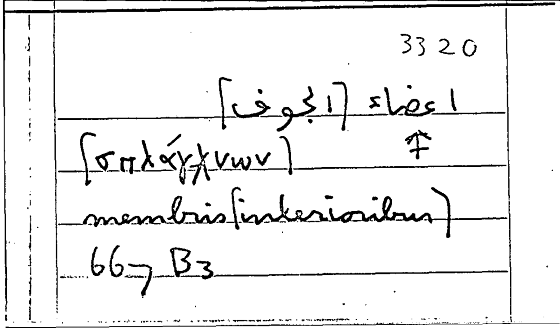 3320
اعضاء [الجوف]
[σπλάγχνων]
membris [interioribus]
667 B3